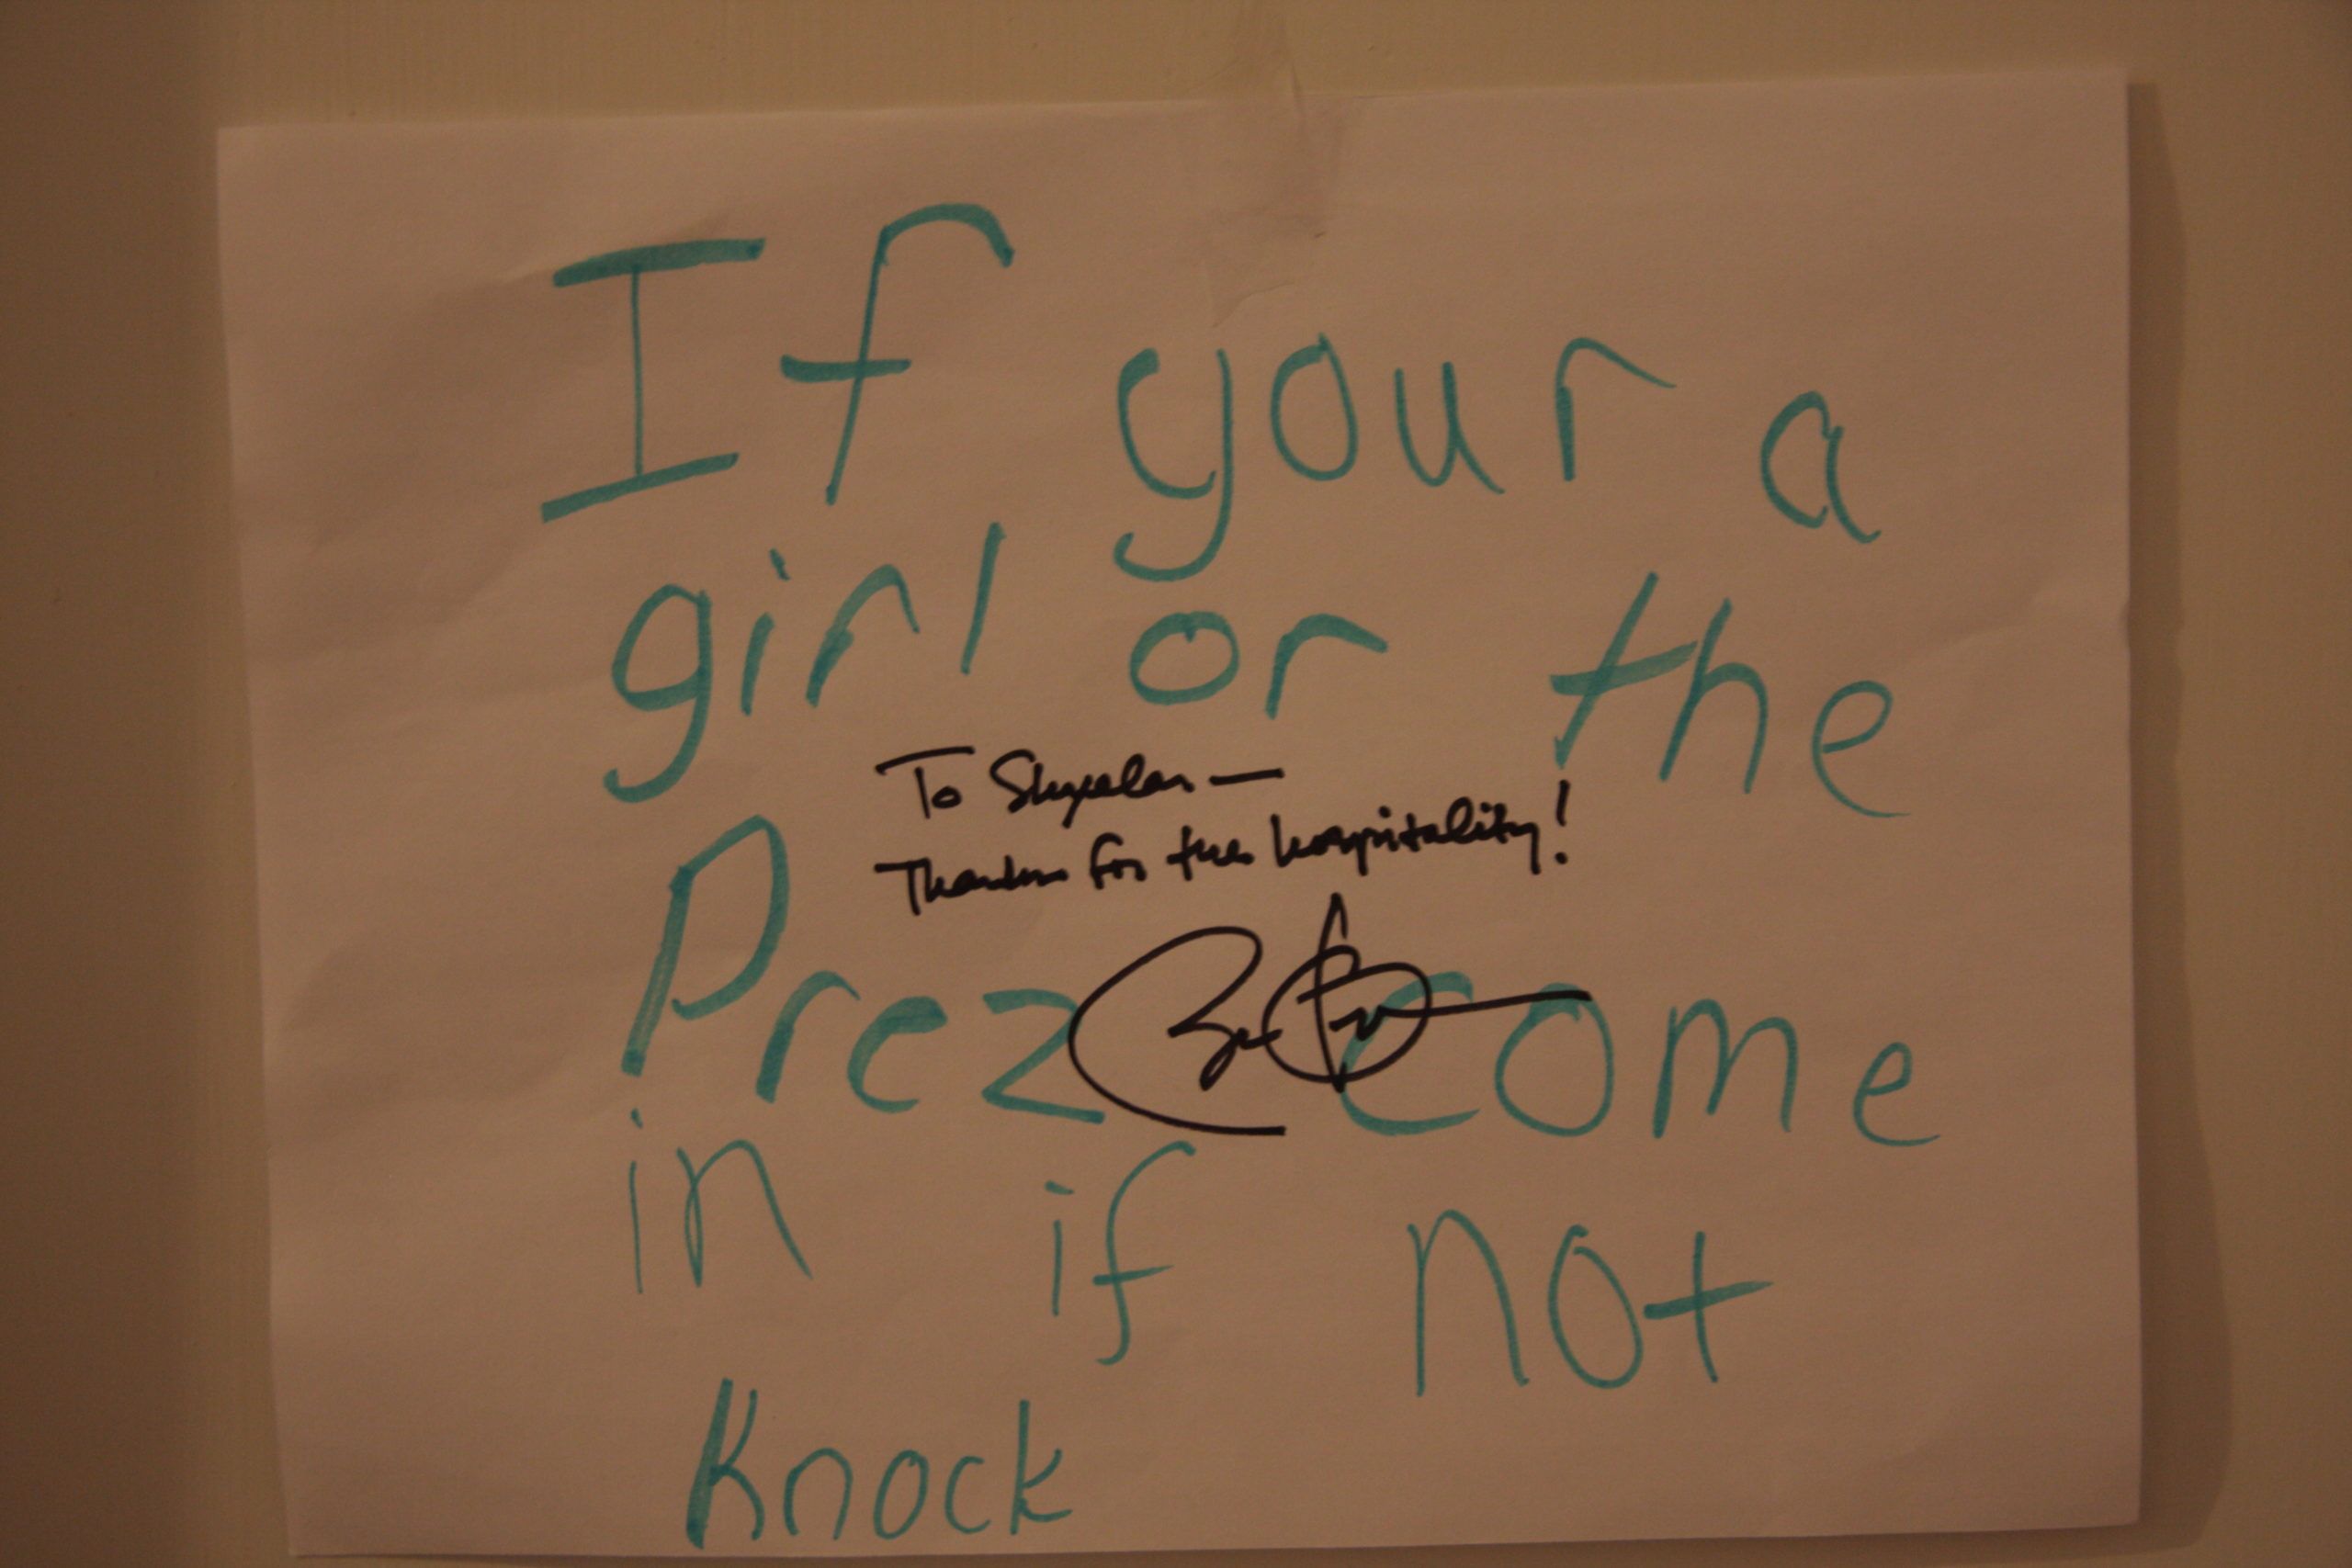 If your a
girl or the
To Skyelar —
Thanks for the hospitality!
Prez come
in if not
Knock